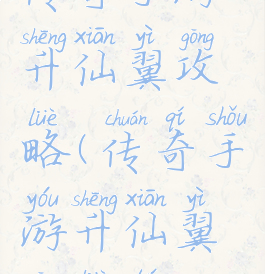 shēng xiān yì gōng
升仙翼攻
lüè chuán qí shǒu
略(传奇手
yóu shēng xiān yì
游升仙翼